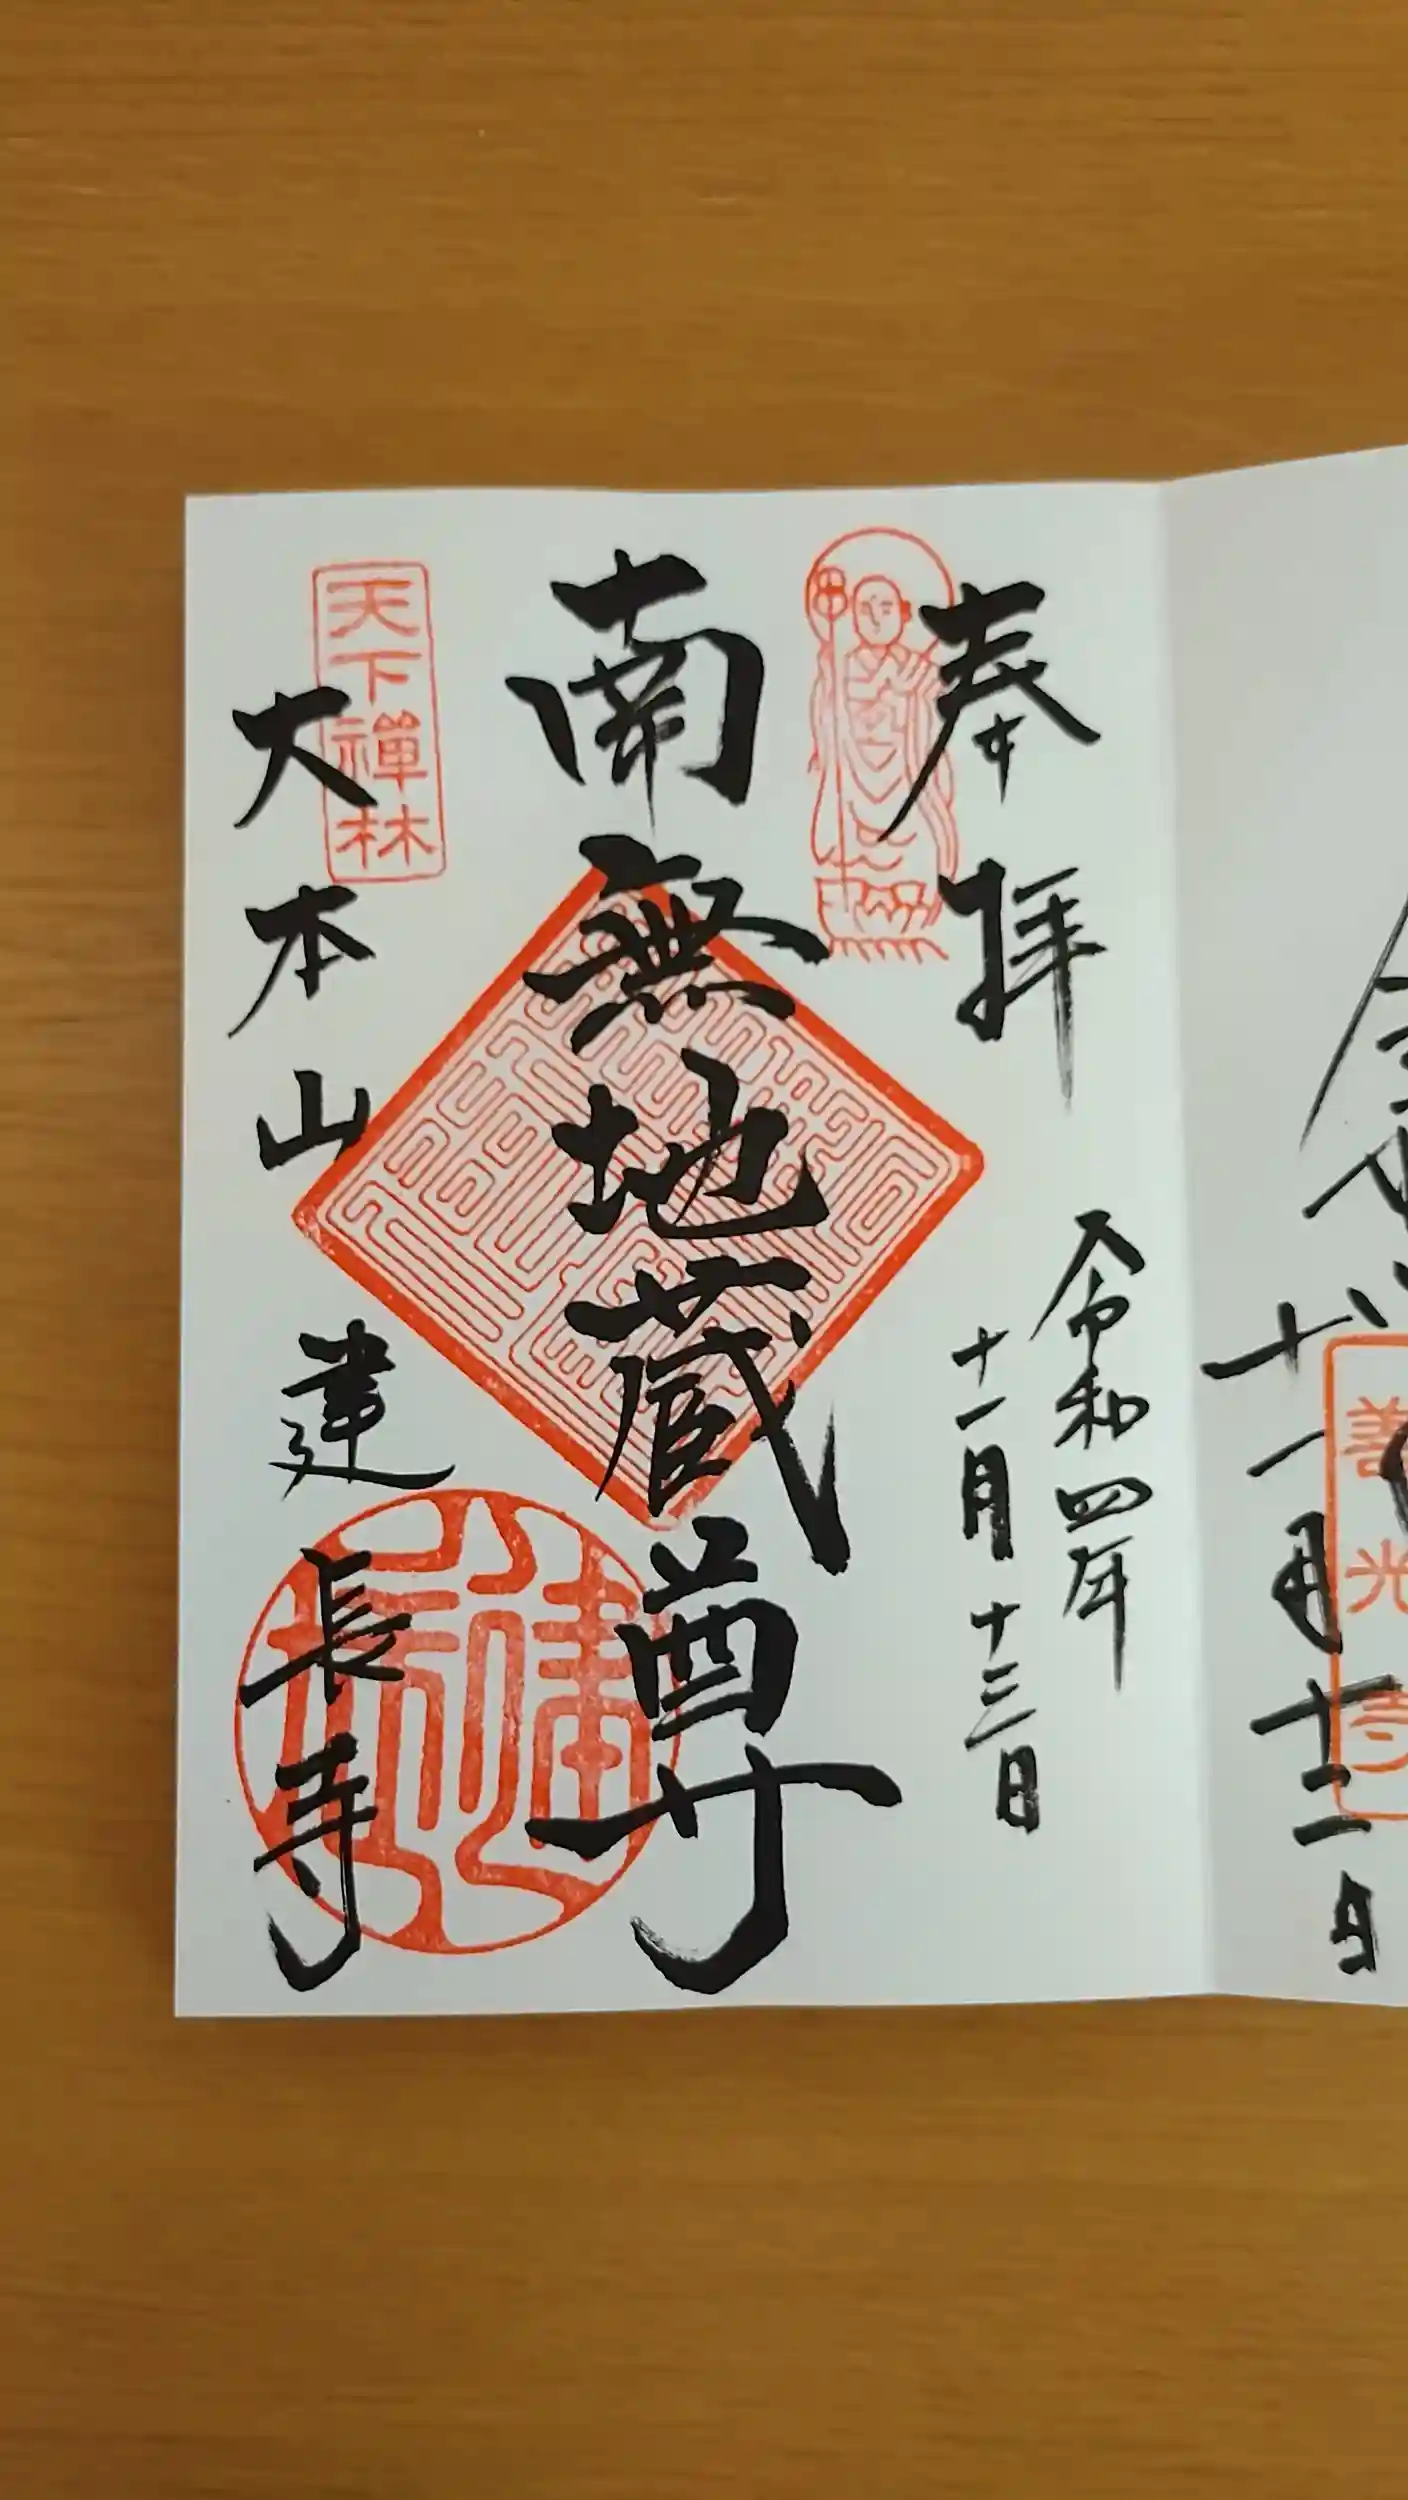 十一月十二日
善光寺
奉拝
令和四年
十一月十三日
南無地蔵尊
天下禅林
大本山
建長寺